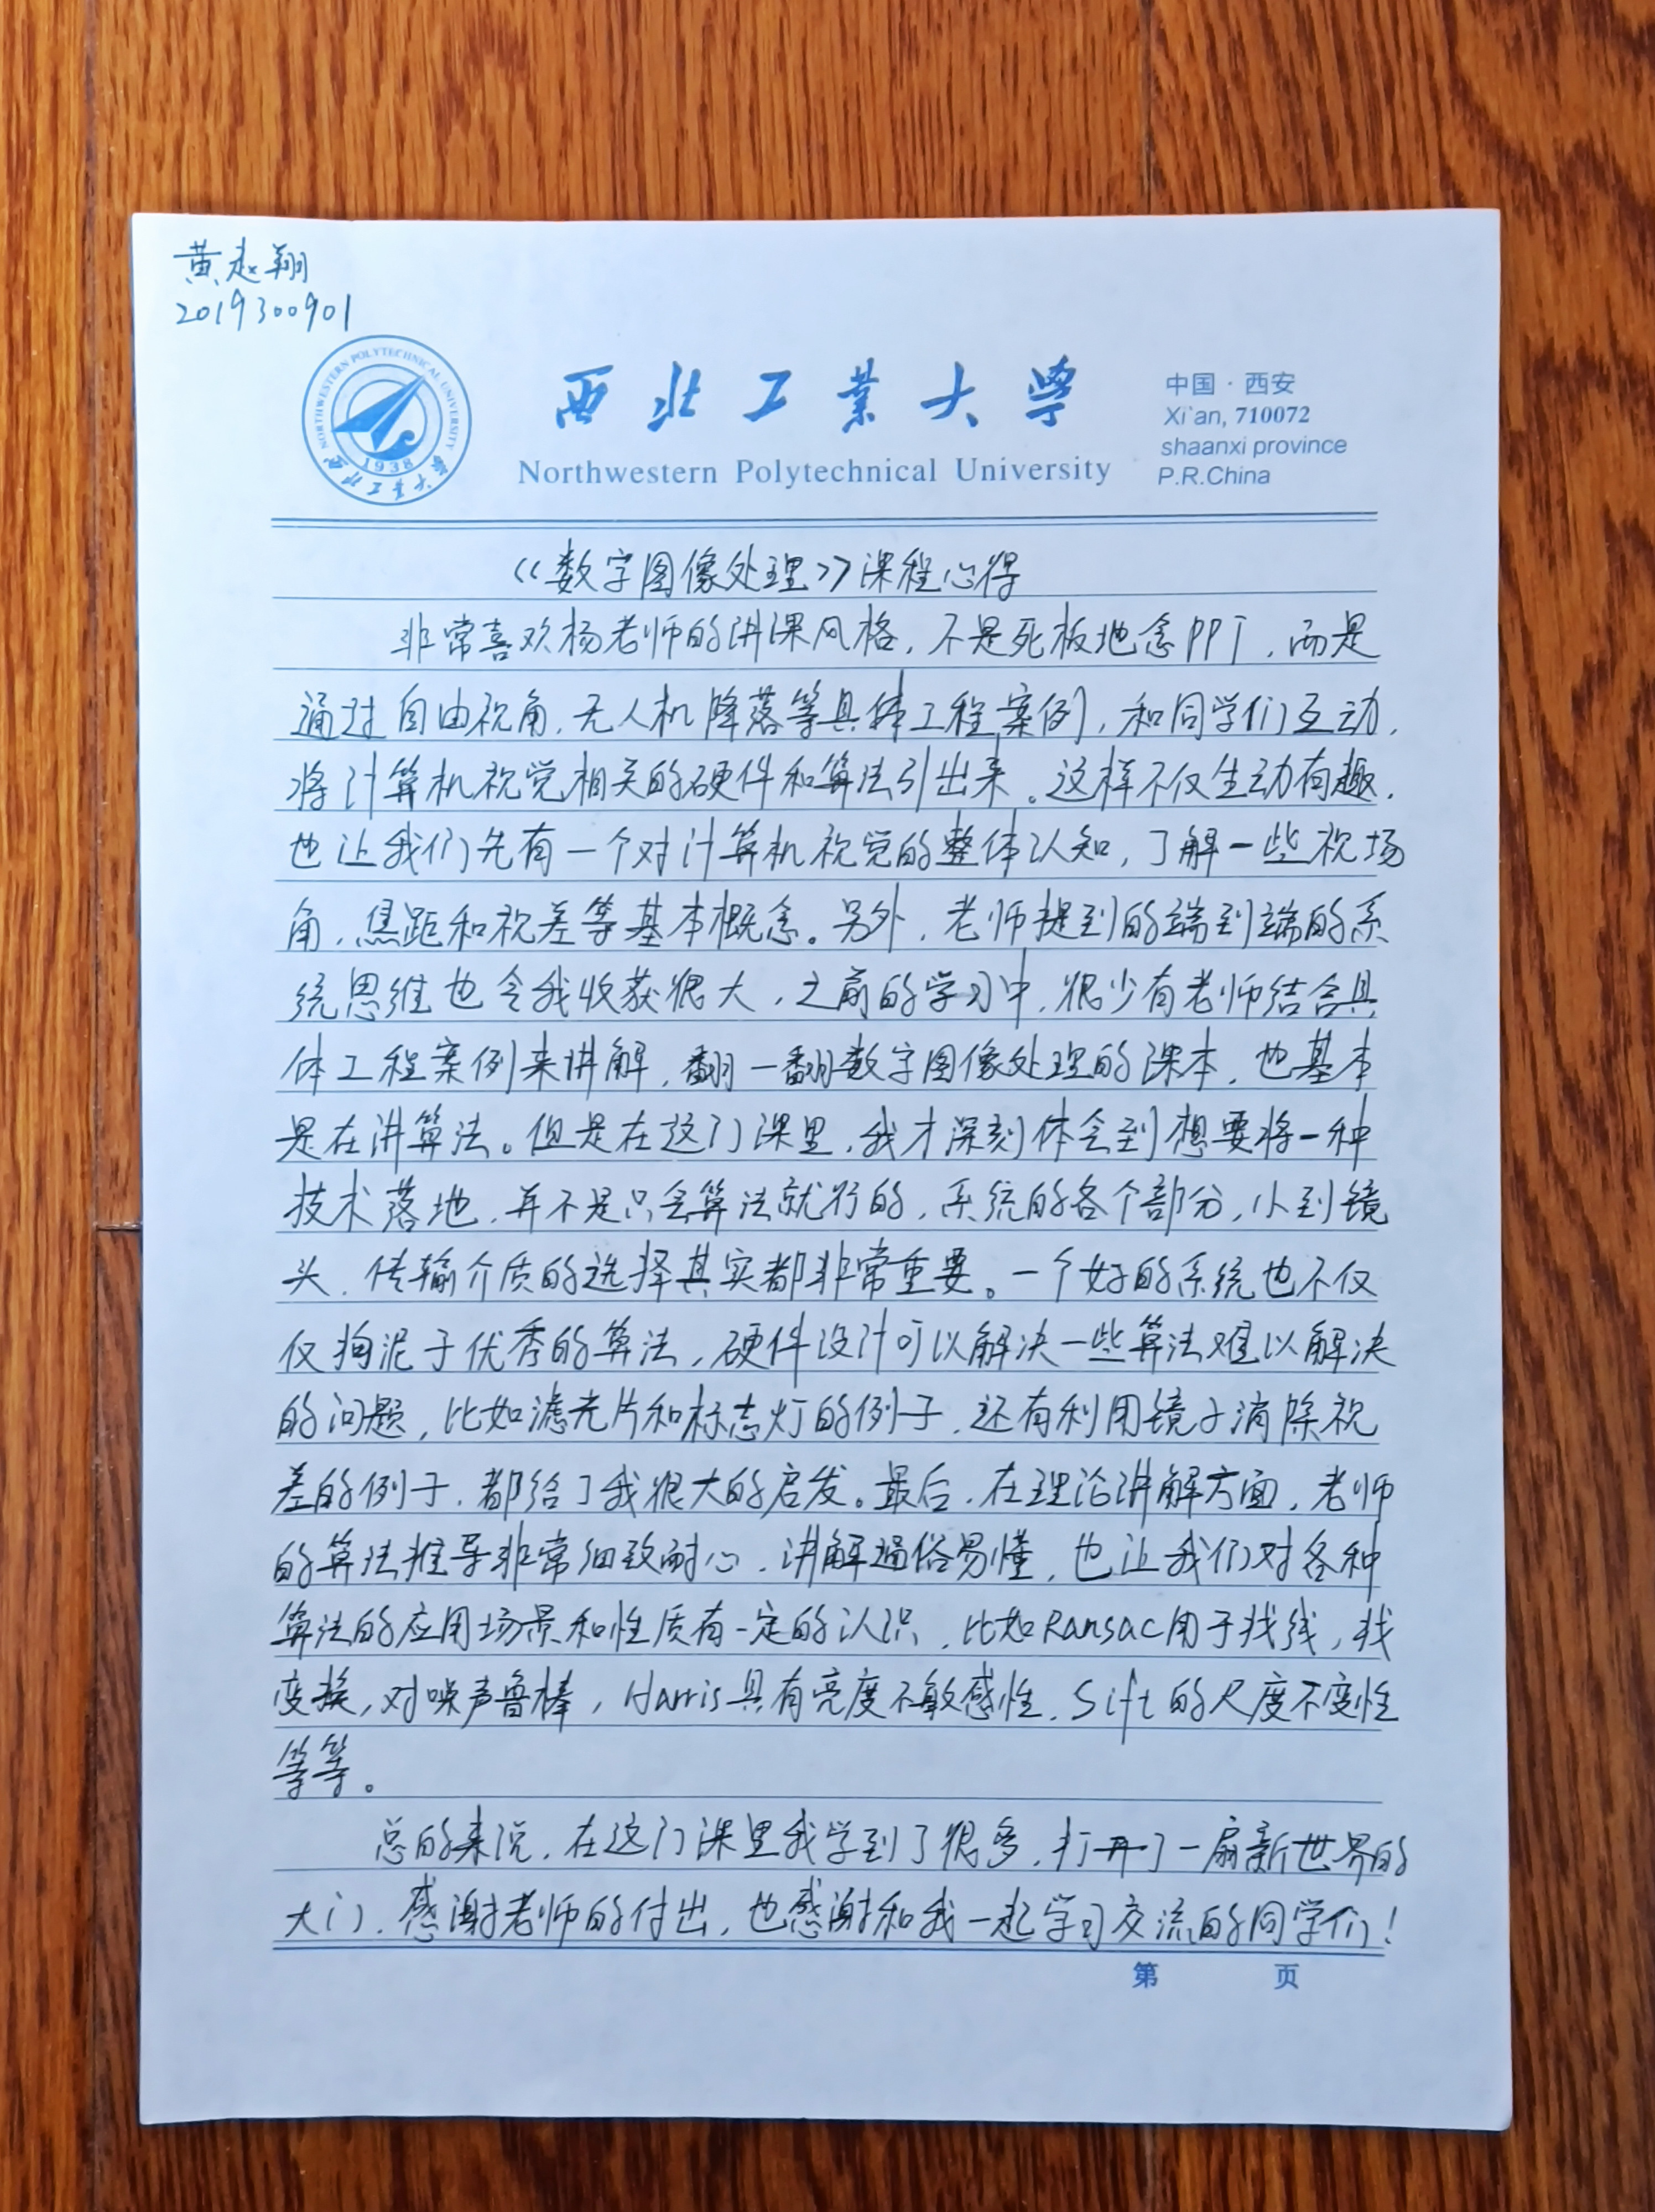 黄赵翔
2019300901
NORTHWESTERN POLYTECHNICAL UNIVERSITY
1938
西北工业大学
西北工业大学
Northwestern Polytechnical University
中国·西安
Xi'an, 710072
shaanxi province
P.R.China
《数字图像处理》课程心得
非常喜欢杨老师的讲课风格，不是死板地念PPT，而是
通过自由视角，无人机降落等具体工程案例，和同学们互动，
将计算机视觉相关的硬件和算法引出来。这样不仅生动有趣，
也让我们先有一个对计算机视觉的整体认知，了解一些视场
角，焦距和视差等基本概念。另外，老师提到的端到端的系
统思维也令我收获很大，之前的学习中，很少有老师结合具
体工程案例来讲解，翻一翻数字图像处理的课本，也基本
是在讲算法。但是在这门课里，我才深刻体会到想要将一种
技术落地，并不是只会算法就行的，系统的各个部分，小到镜
头，传输介质的选择其实都非常重要。一个好的系统也不仅
仅拘泥于优秀的算法，硬件设计可以解决一些算法难以解决
的问题，比如滤光片和标志灯的例子，还有利用镜子消除视
差的例子，都给了我很大的启发。最后，在理论讲解方面，老师
的算法推导非常细致耐心，讲解通俗易懂，也让我们对各种
算法的应用场景和性质有一定的认识，比如Ransac用于找线，找
变换，对噪声鲁棒，Harris具有亮度不敏感性，Sift的尺度不变性
等等。
总的来说，在这门课里我学到了很多，打开了一扇新世界的
大门，感谢老师的付出，也感谢和我一起学习交流的同学们！
第 页